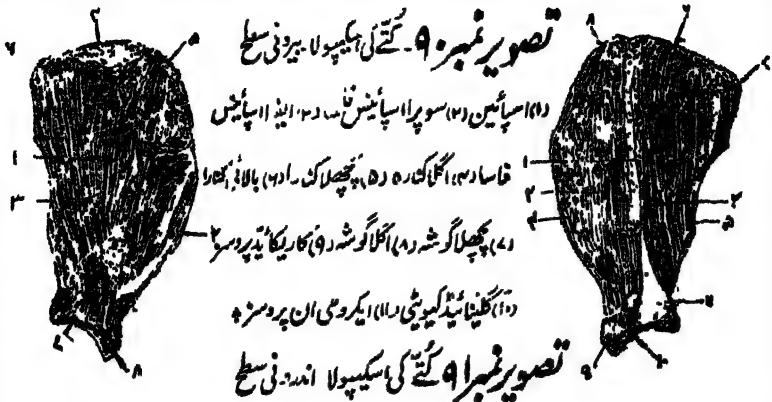 تصویر نمبر ۹۰۔ کُتّے کی اسکیپولا۔ بیرونی سطح
(۱) اسپائین (۲) سوپرا اسپائینس فاسا (۳) اینڈ اسپائینس
فاسا (۴) اگلا کنارہ (۵) پچھلا کنارا (۶) بالائی کنارا
(۷) پچھلا گوشہ (۸) اگلا گوشہ (۹) کاریکائیڈ پروسز
(۱۰) گلینائیڈ کیویٹی (۱۱) ایکرومی ان پروسز ۔
تصویر نمبر ۹۱ کُتّے کی اسکیپولا اندرونی سطح